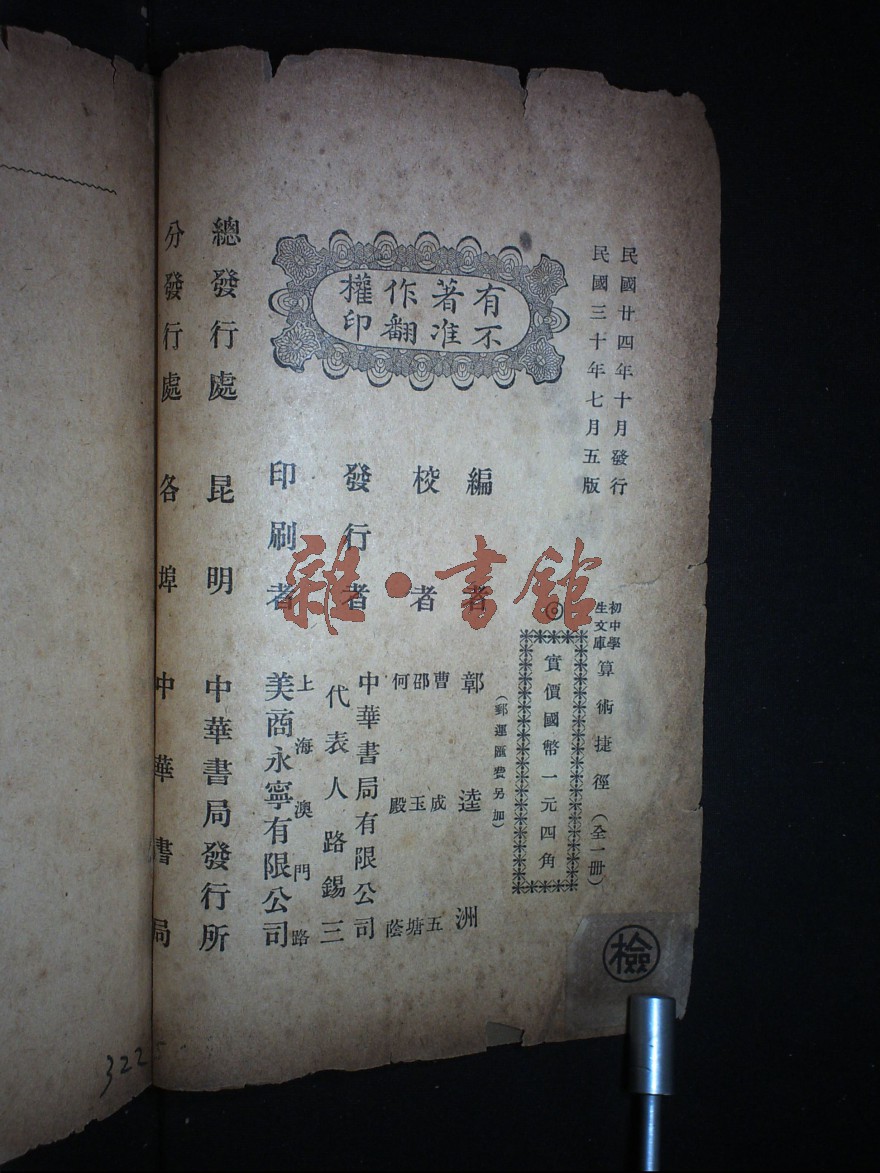 民國廿四年十月發行
民國三十年七月五版
初中學
生文庫
算術捷徑（全一冊）
實價國幣一元四角
（郵運匯費另加）
有著作權
不准翻印
編者 郭逵洲
校者
曹成五
邵玉塘
何殿蔭
發行者
中華書局有限公司
代表人路錫三
印刷者
上海澳門路
美商永寧有限公司
總發行處 昆明 中華書局發行所
分發行處 各埠 中華書局
檢
雜·書館
322